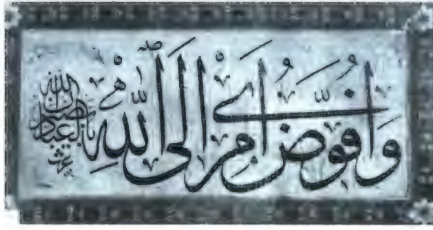 وَاُفَوِّضُ اَمْرِى اِلَى اللّٰهِ
اِنَّ اللّٰه بصير بالعباد